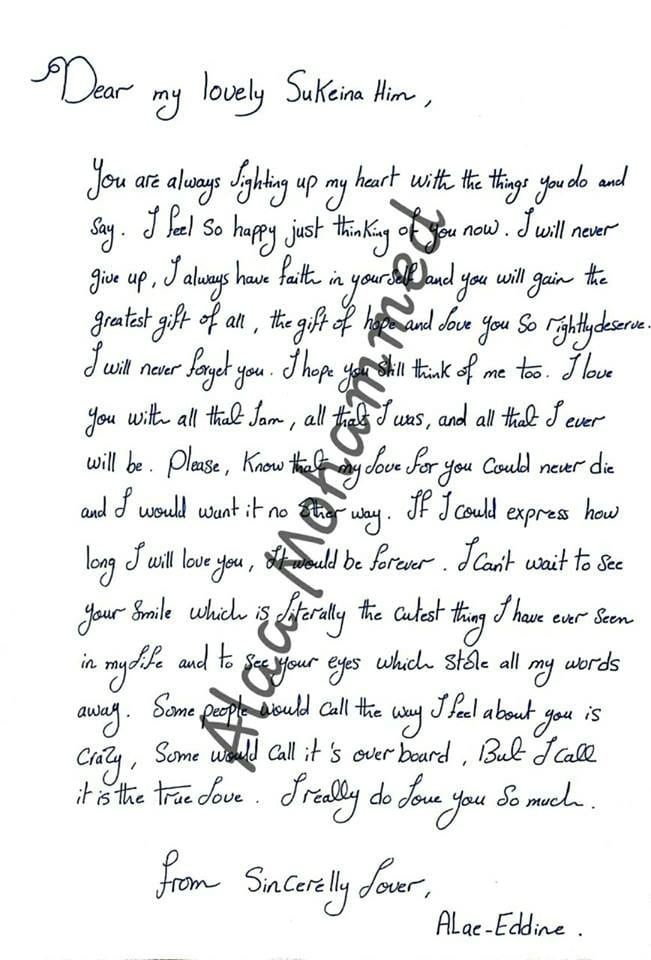 Dear my lovely Sukeina Him,
You are always lighting up my heart with the things you do and
say. I feel so happy just thinking of you now. I will never
give up, I always have faith in yourself and you will gain the
greatest gift of all, the gift of hope and love you so rightly deserve.
I will never forget you. I hope you still think of me too. I love
you with all that I am, all that I was, and all that I ever
will be. Please, Know that my love for you Could never die
and I would want it no other way. If I could express how
long I will love you, It would be forever. I Can't wait to see
your smile which is literally the cutest thing I have ever seen
in my life and to see your eyes which stole all my words
away. Some people would call the way I feel about you is
crazy, Some would call it's over board, But I call
it is the true love. I really do love you so much.
From Sincerelly Lover,
ALae-Eddine.
Alaa Mohammed